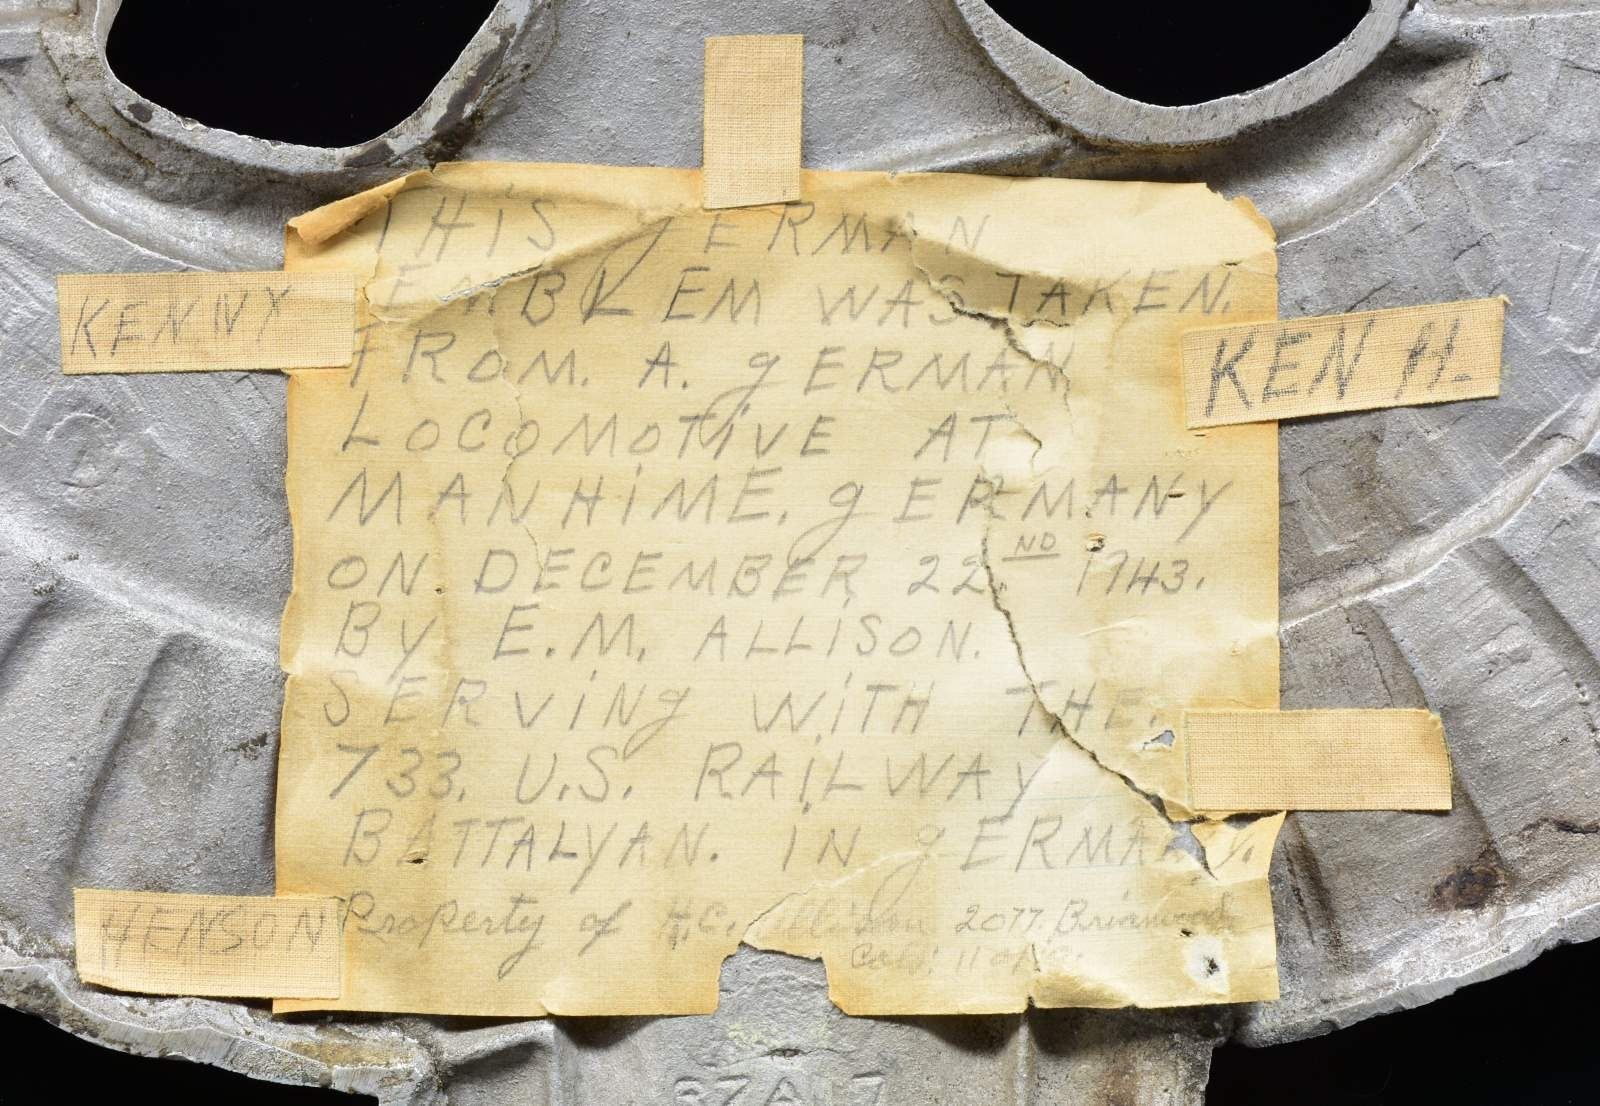 THIS gERMAN
EMBLEM WAS TAKEN.
FROM. A. gERMAN
LOCOMOTIVE AT
MANHIME. gERMANY
ON DECEMBER 22.ND 1943.
By E.M. ALLISON.
SERVING WITH THE.
733. U.S. RAILWAY
BATTALYAN. IN gERMANY.
Property of H.C. Allison 2077. Briarwood
KENNY
KEN H.
HENSON